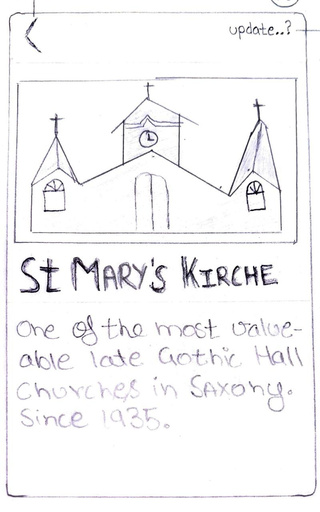 update..?
St MARY'S KIRCHE
One of the most value-
able late Gothic Hall
Churches in SAxony.
Since 1935.